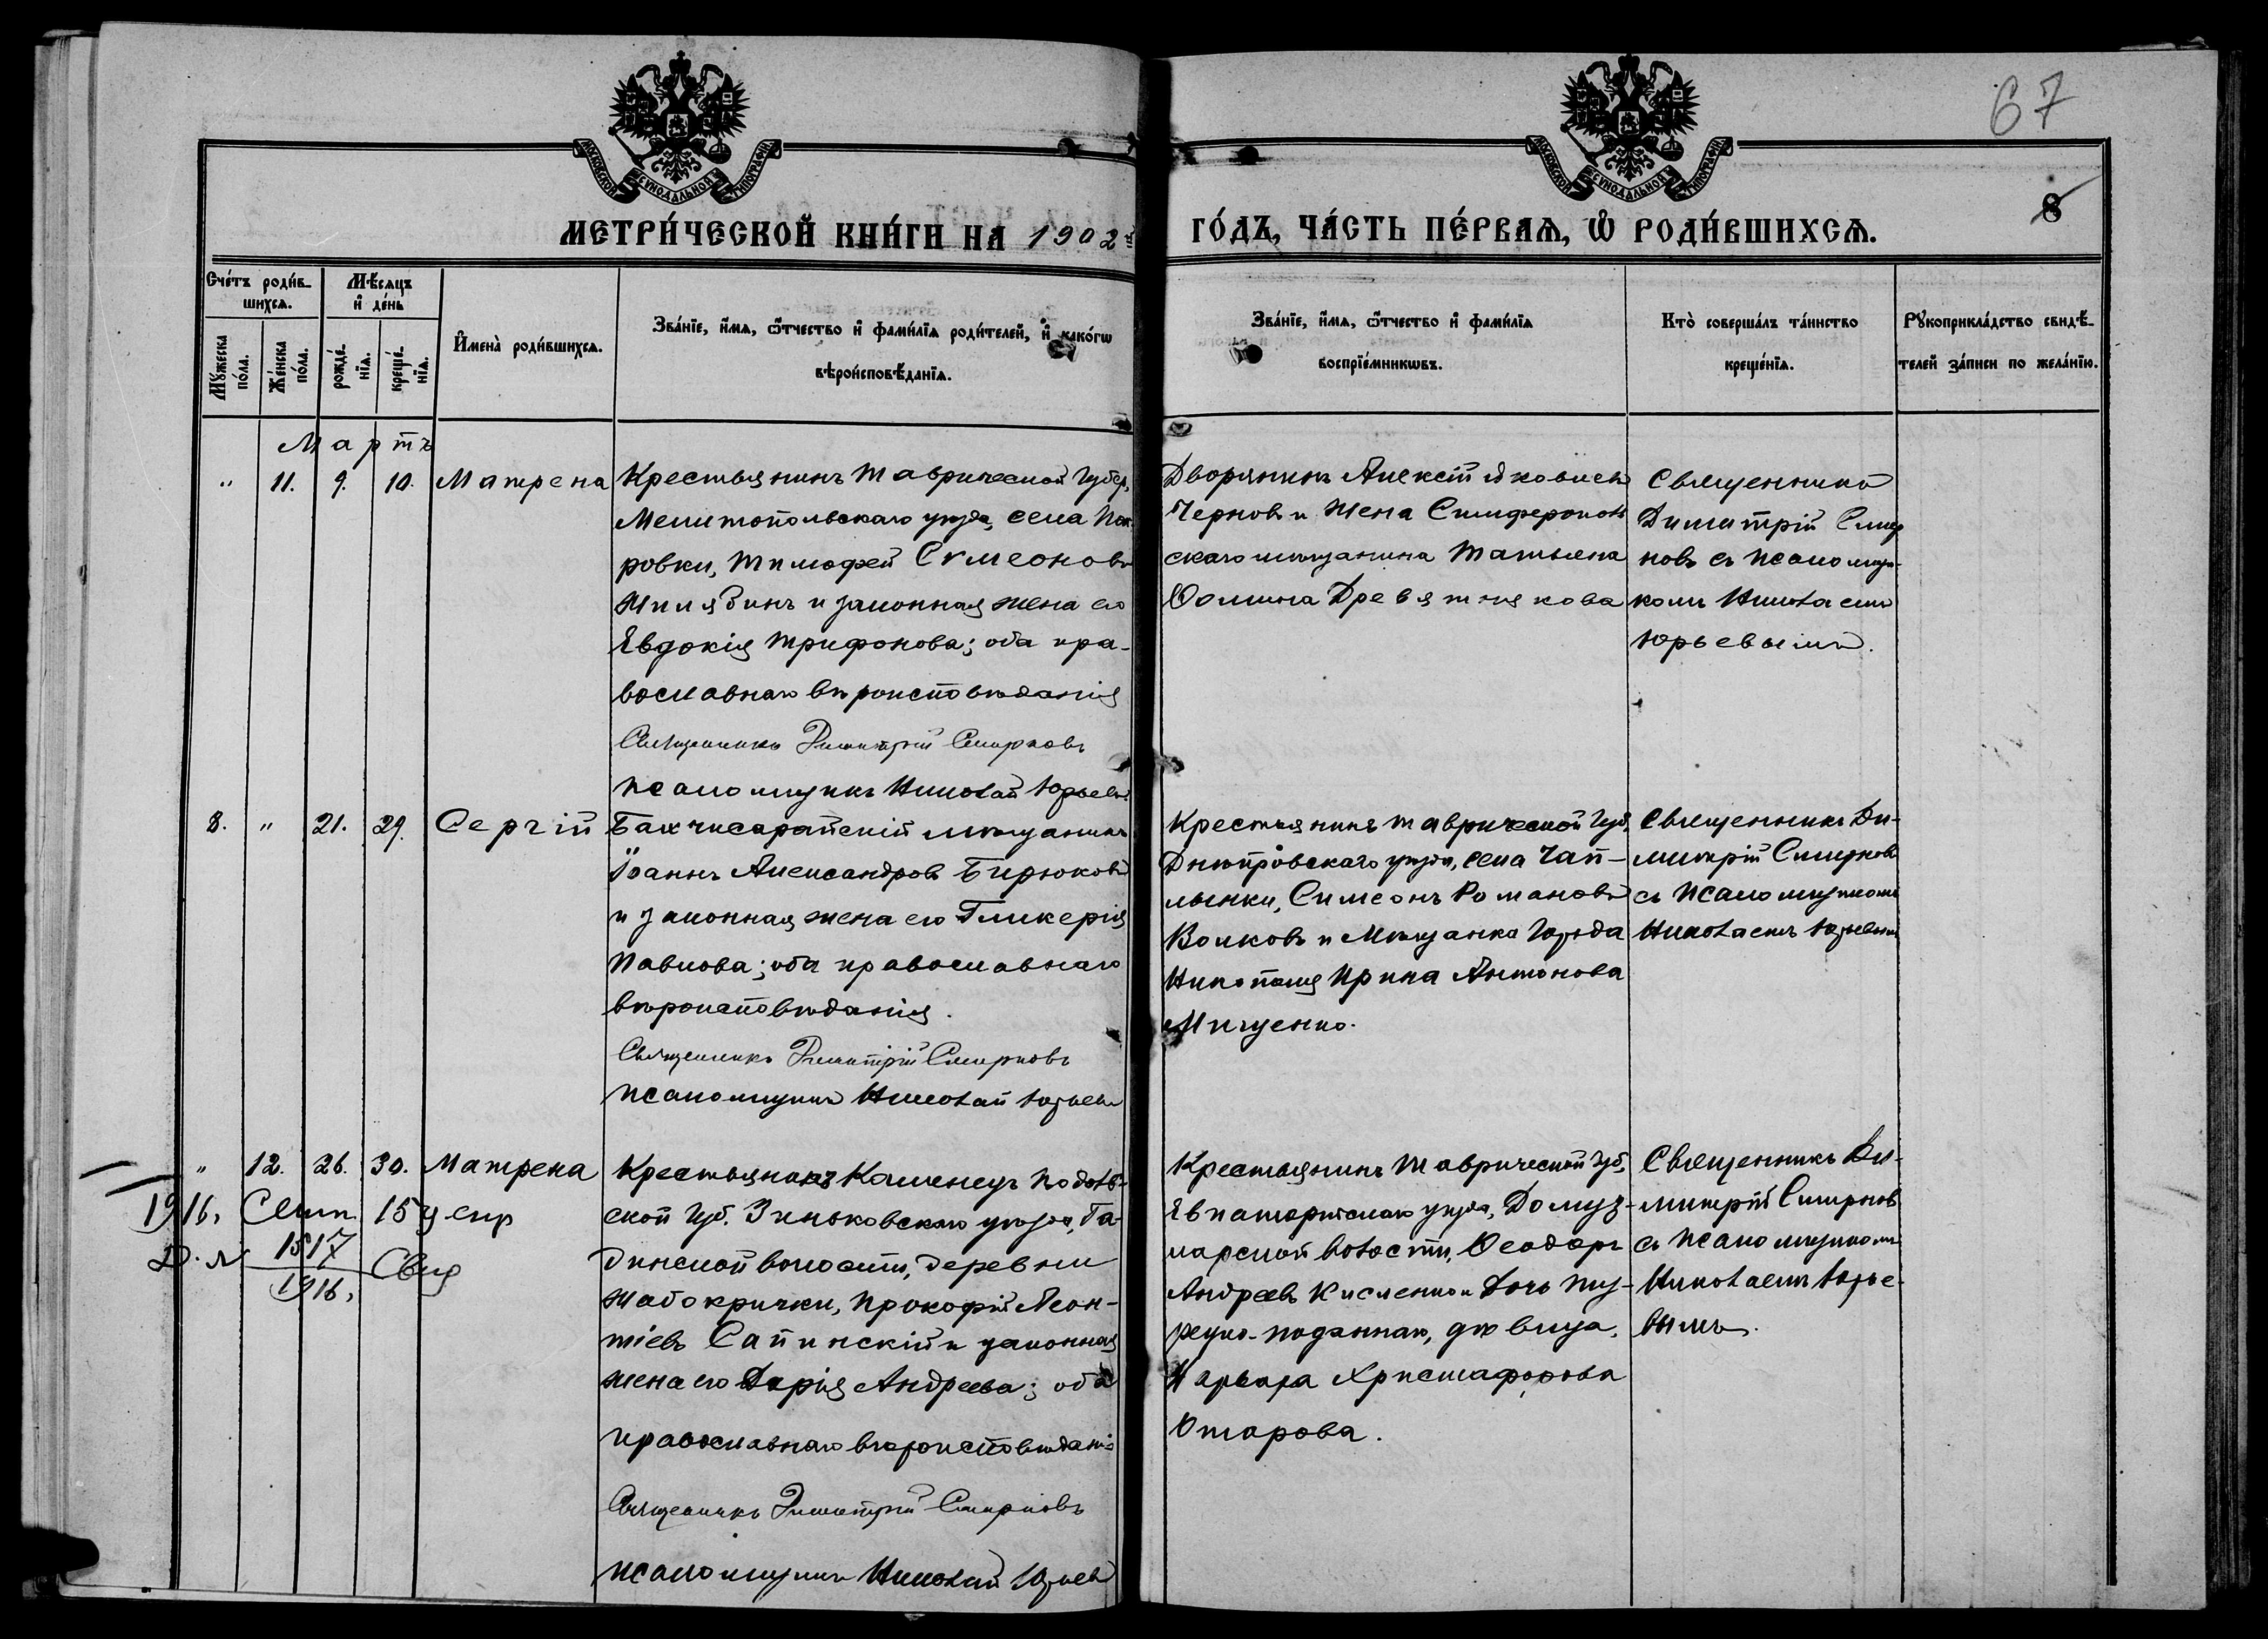 67
8
МОСКОВСКОЙ СѴНОДАЛЬНОЙ ТИПОГРАФІИ
МОСКОВСКОЙ СѴНОДАЛЬНОЙ ТИПОГРАФІИ
МЕТРИ́ЧЕСКОЙ КНИ́ГИ НА 1902й ГО́ДЪ, ЧА́СТЬ ПЕ́РВАЯ, Ѽ РОДИ́ВШИХСЯ.
Сче́тъ роди́в-
шихся.
Му́жеска
по́ла.
Же́нска
по́ла.
Мѣ́сяцъ
и҆ де́нь
рожде́-
нїя.
креще́-
нїя.
И҆мена̀ роди́вшихся.
Зва́нїе, и҆́мя, ѻ҆́тчество и҆ фами́лїя роди́телей, и҆ како́гѡ
вѣроисповѣ́данїя.
Зва́нїе, и҆́мя, ѻ҆́тчество и҆ фами́лїя
воспрїе́мникѡвъ.
Кто̀ соверша́лъ та́инство
креще́нїя.
Рꙋкоприкла́дство свидѣ́-
телей за́писи по жела́нїю.
Мартъ
" 11. 9. 10. Матрена
Крестьянинъ Таврической Губер,
Мелитопольскаго уѣзда, села Пок-
ровки, Тимофей Сѵмеоновъ
Жилябинъ и законная жена его
Евдокія Трифонова; оба пра-
вославнаго вѣроисповѣданія
Священникъ Димитрій Смирновъ
псаломщикъ Николай Юрьевъ
Дворянинъ Алексѣй Яковлевъ
Черновъ и жена Симферополь
скаго мѣщанина Татьяна
Ѳомина Древятникова
Священникъ
Димитрій Смир
новъ съ псаломщи-
комъ Николаемъ
Юрьевымъ.
8. " 21. 29. Сергій
Бахчисарайскій мѣщанинъ
Іоаннъ Александровъ Бирюковъ
и законная жена его Гликерія
Павлова; оба православнаго
вѣроисповѣданія.
Священникъ Димитрій Смирновъ
псаломщикъ Николай Юрьевъ
Крестьянинъ Таврической Губ,
Днѣпровскаго уѣзда, села Чап-
лынки, Симеонъ Романовъ
Волковъ и Мѣщанка города
Никополя Ирина Антонова
Мищенко.
Священникъ Ди-
митрій Смирновъ
съ псаломщикомъ
Николаемъ Юрьевымъ
" 12. 26. 30. Матрена
1916, Сент. 15
Д. № 1517
1916,
Свид
Крестьянинъ Каменецъ Подоль-
ской Губ. Зиньковскаго уѣзда, Га-
динской волости, деревни
Жабокрички, Прокофій Леон-
тіевъ Сапинскій и законная
жена его Дарія Андреева; оба
православнаго вѣроисповѣданія
Священникъ Димитрій Смирновъ
псаломщикъ Николай Юрьевъ
Крестьянинъ Таврической Губ,
Евпаторійскаго уѣзда, Домуз-
ларской волости, Ѳеодоръ
Андреевъ Кисленко и дочь ту-
рецко-подданнаго, дѣвица,
Варвара Христофорова
Отарова.
Священникъ Ди-
митрій Смирновъ
съ псаломщикомъ
Николаемъ Юрье-
вымъ.